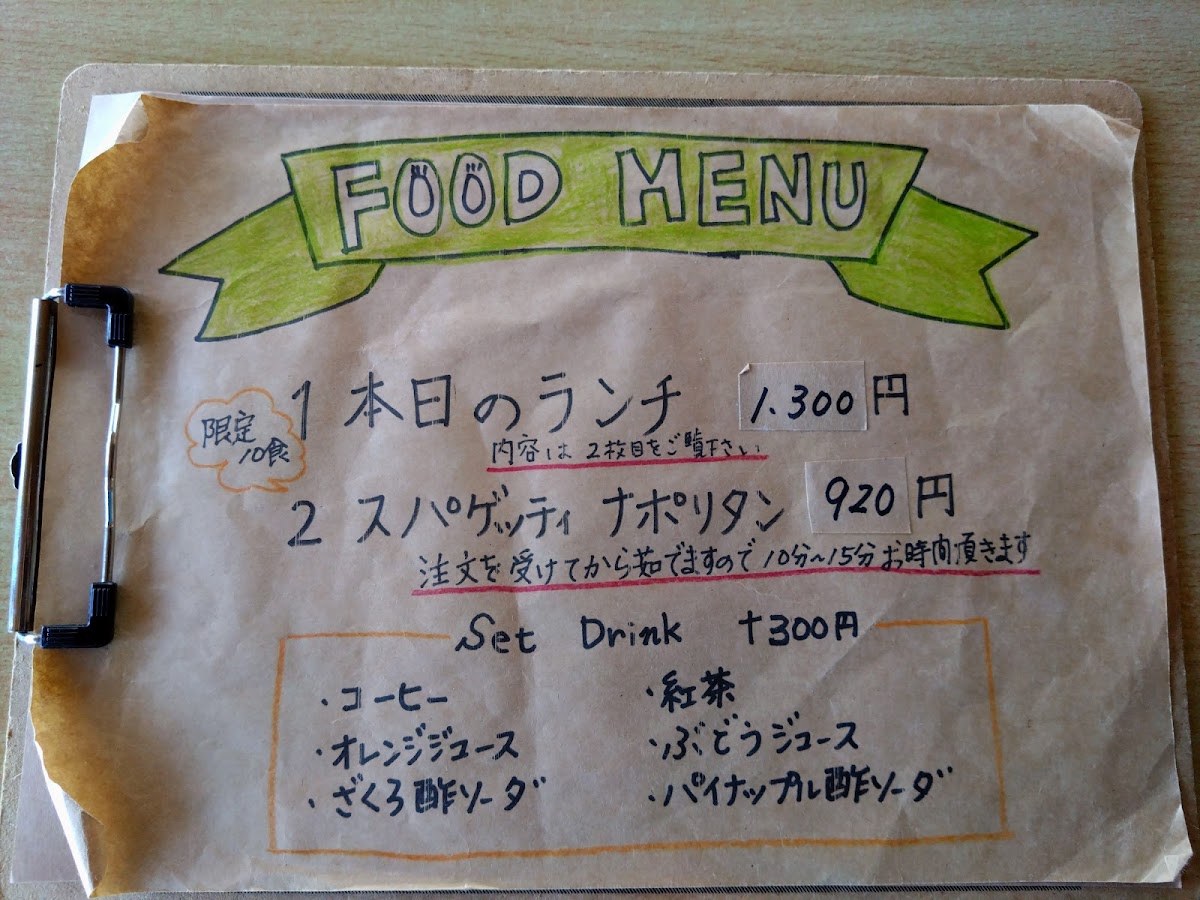 FOOD MENU
限定
10食
1 本日のランチ 1.300円
内容は 2枚目をご覧下さい
2 スパゲッティ ナポリタン 920円
注文を受けてから茹でますので 10分～15分お時間頂きます
Set Drink +300円
・コーヒー ・紅茶
・オレンジジュース ・ぶどうジュース
・ざくろ酢ソーダ ・パイナップル酢ソーダ